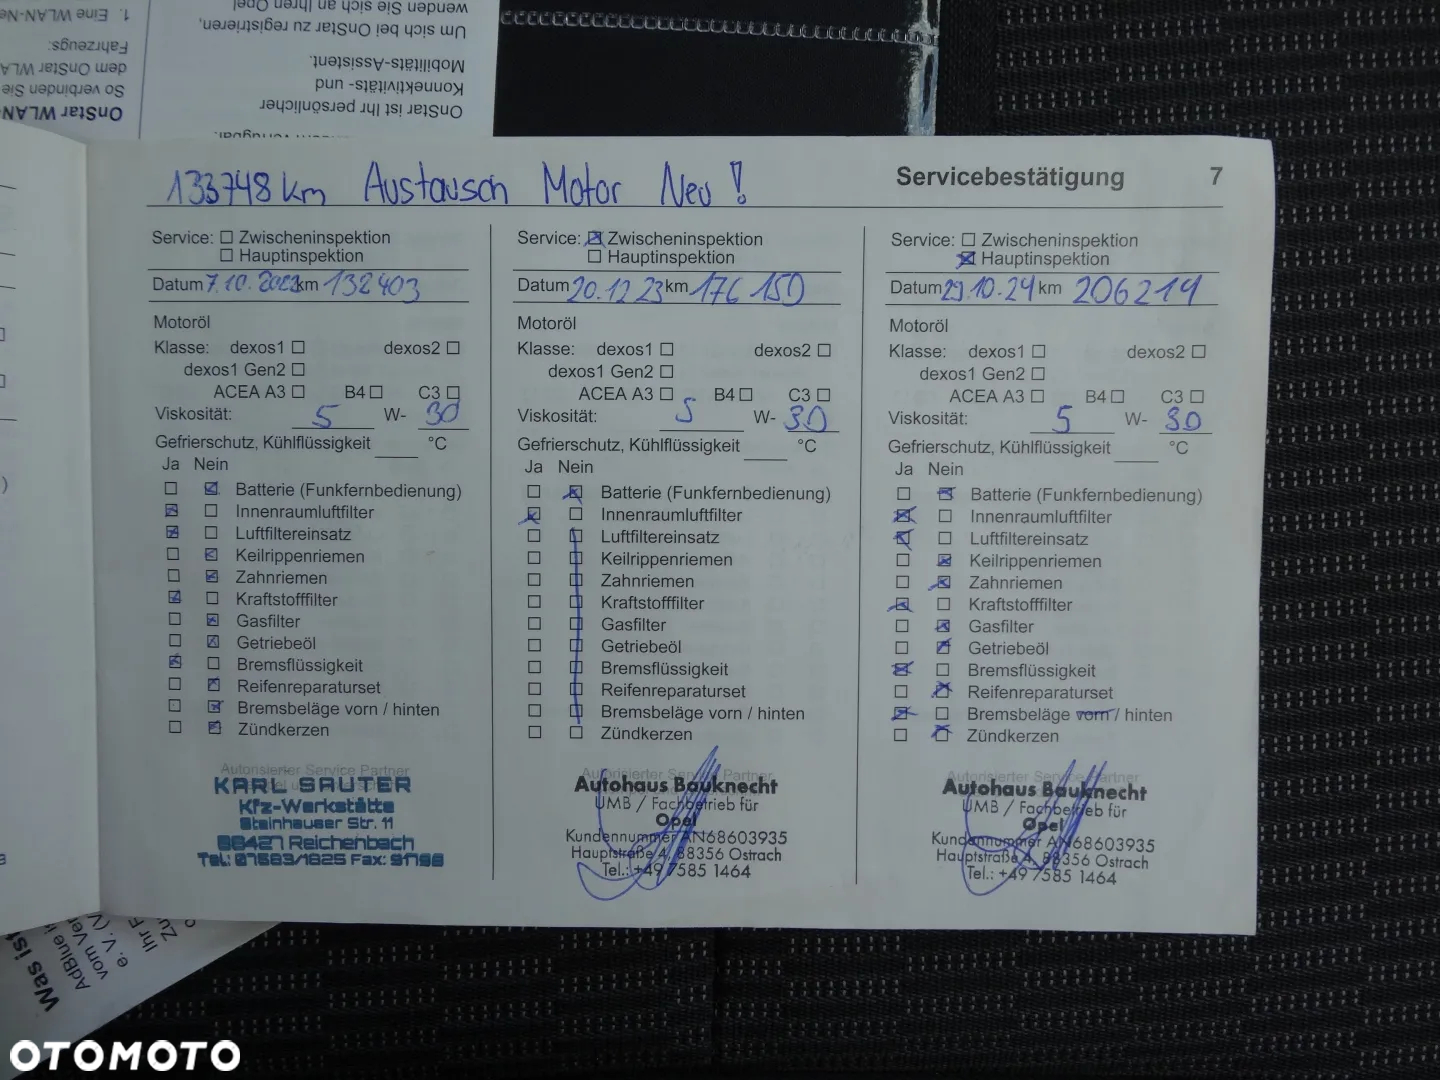 1. Eine WLAN-Ne
Fahrzeugs:
dem OnStar WLA
So verbinden Sie
OnStar WLAN-
wenden Sie sich an Ihren Opel
Um sich bei OnStar zu registrieren,
Mobilitäts-Assistent.
Konnektivitäts- und
OnStar ist Ihr persönlicher
133748 km Austausch Motor Neu!
Servicebestätigung 7
Service: Zwischeninspektion
Hauptinspektion
Datum 7.10.2023 km 132403
Motoröl
Klasse: dexos1 dexos2
dexos1 Gen2
ACEA A3 B4 C3
Viskosität: 5 W- 30
Gefrierschutz, Kühlflüssigkeit °C
Ja Nein
Batterie (Funkfernbedienung)
Innenraumluftfilter
Luftfiltereinsatz
Keilrippenriemen
Zahnriemen
Kraftstofffilter
Gasfilter
Getriebeöl
Bremsflüssigkeit
Reifenreparaturset
Bremsbeläge vorn / hinten
Zündkerzen
Autorisierter Service Partner
KARL SAUTER
Kfz-Werkstätte
Steinhauser Str. 11
88427 Reichenbach
Tel: 07583/1825 Fax: 91798
Service: Zwischeninspektion
Hauptinspektion
Datum 20.12 23 km 176 150
Motoröl
Klasse: dexos1 dexos2
dexos1 Gen2
ACEA A3 B4 C3
Viskosität: 5 W- 30
Gefrierschutz, Kühlflüssigkeit °C
Ja Nein
Batterie (Funkfernbedienung)
Innenraumluftfilter
Luftfiltereinsatz
Keilrippenriemen
Zahnriemen
Kraftstofffilter
Gasfilter
Getriebeöl
Bremsflüssigkeit
Reifenreparaturset
Bremsbeläge vorn / hinten
Zündkerzen
Autorisierter Service Partner
Autohaus Bauknecht
UMB / Fachbetrieb für
Opel
Kundennummer AN68603935
Hauptstraße 4, 88356 Ostrach
Tel.: +49 7585 1464
Service: Zwischeninspektion
Hauptinspektion
Datum 29.10.24 km 206219
Motoröl
Klasse: dexos1 dexos2
dexos1 Gen2
ACEA A3 B4 C3
Viskosität: 5 W- 30
Gefrierschutz, Kühlflüssigkeit °C
Ja Nein
Batterie (Funkfernbedienung)
Innenraumluftfilter
Luftfiltereinsatz
Keilrippenriemen
Zahnriemen
Kraftstofffilter
Gasfilter
Getriebeöl
Bremsflüssigkeit
Reifenreparaturset
Bremsbeläge vorn / hinten
Zündkerzen
Autorisierter Service Partner
Autohaus Bauknecht
UMB / Fachbetrieb für
Opel
Kundennummer AN68603935
Hauptstraße 4, 88356 Ostrach
Tel.: +49 7585 1464
Was ist
AdBlue
vom Ver
e. V. (V
Ihr F
Zu
OTOMOTO